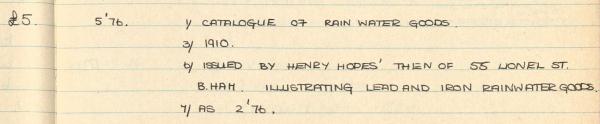 £5. 5'76. 1/ CATALOGUE OF RAIN WATER GOODS.
3/ 1910.
6/ ISSUED BY HENRY HOPES' THEN OF 55 LIONEL ST.
B.HAM. ILLUSTRATING LEAD AND IRON RAINWATER GOODS.
7/ AS 2'76.